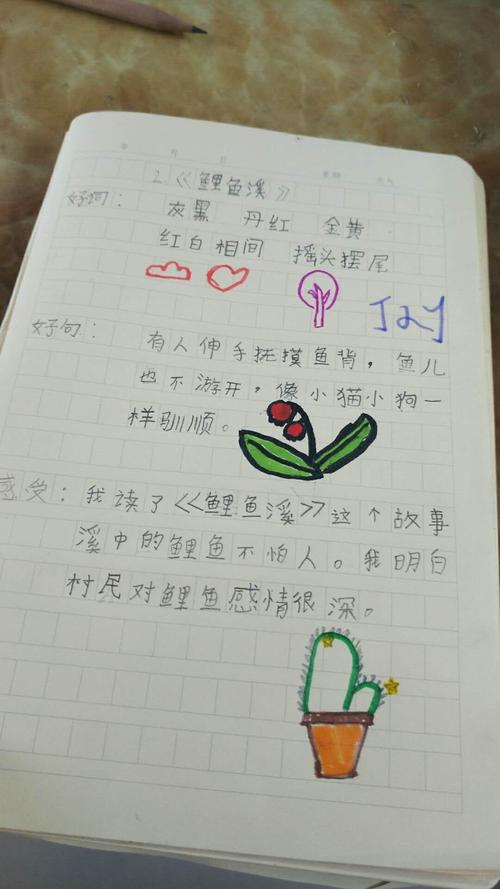 2.《鲤鱼溪》
好词：灰黑 丹红 金黄
红白相间 摇头摆尾
好句：有人伸手抚摸鱼背，鱼儿
也不游开，像小猫小狗一
样驯顺。
感受：我读了《鲤鱼溪》这个故事
溪中的鲤鱼不怕人。我明白
村民对鲤鱼感情很深。